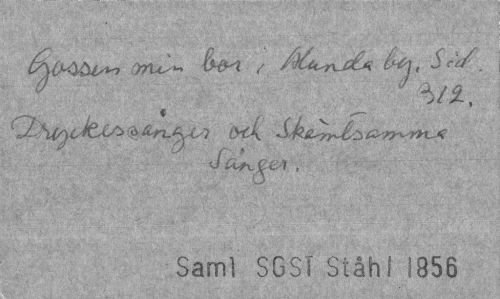 Gossen min bor i Alunda by. Sid.
312.
Dryckessånger och Skämtsamma
Sånger.
Saml SGST Ståhl 1856